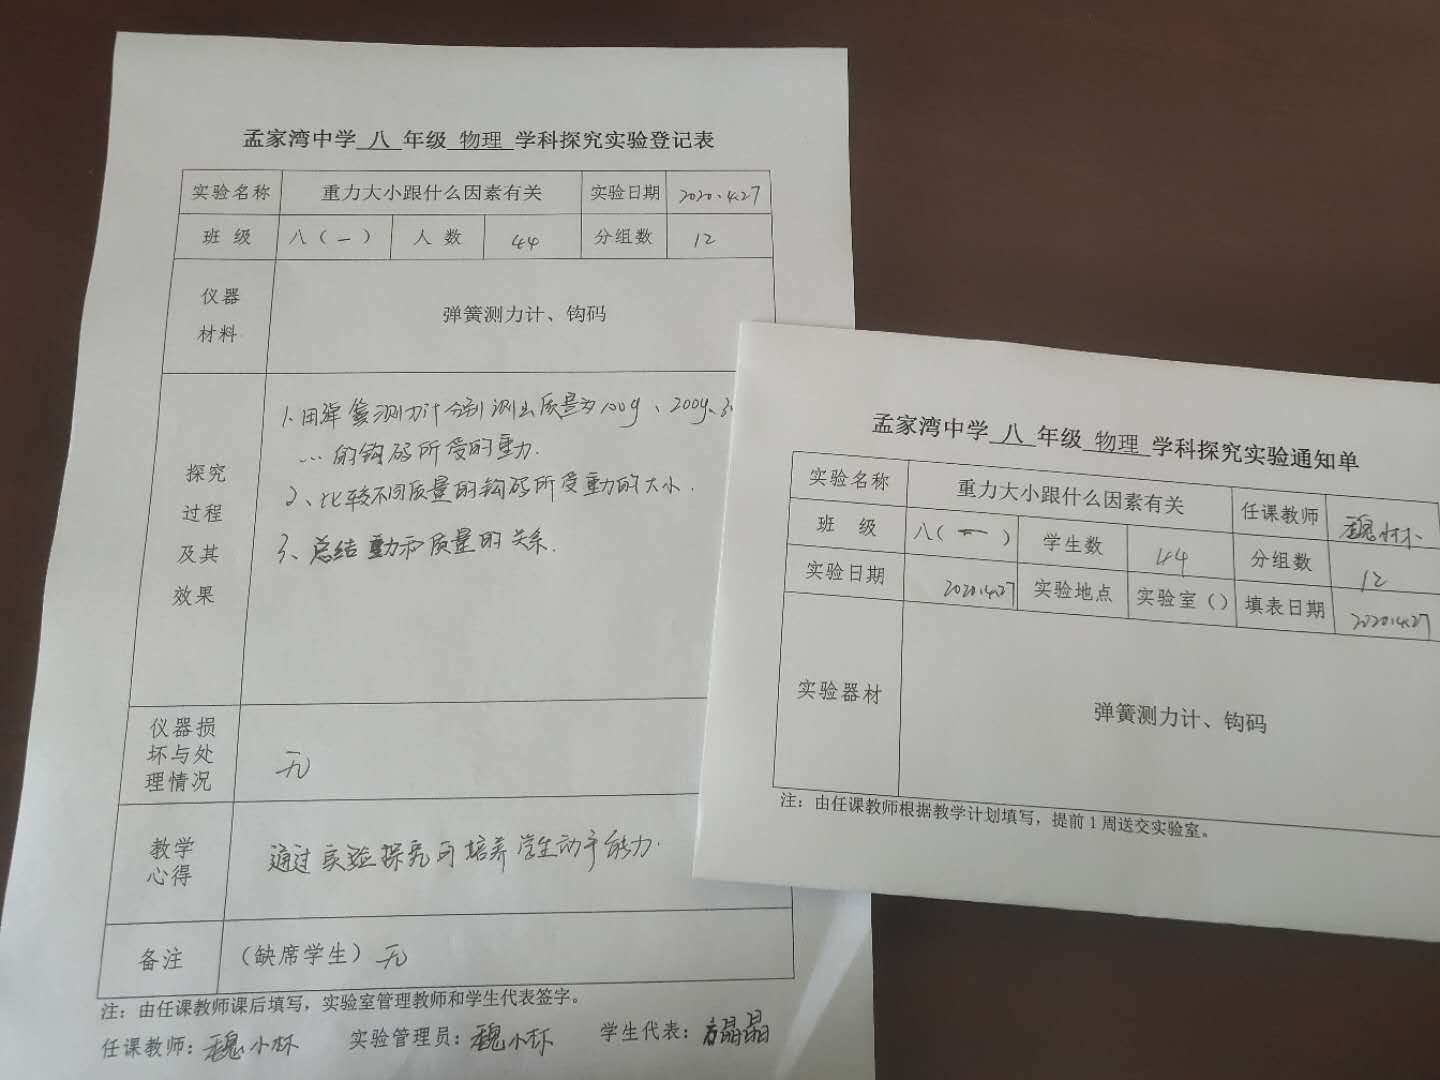 孟家湾中学 八 年级 物理 学科探究实验登记表
实验名称 重力大小跟什么因素有关 实验日期 2020.4.27
班 级 八（一） 人 数 44 分组数 12
仪器
材料
弹簧测力计、钩码
探究
过程
及其
效果
1.用弹簧测力计分别测出质量为100g、200g、
…的钩码所受的重力.
2、比较不同质量的钩码所受重力的大小.
3、总结重力和质量的关系.
仪器损
坏与处
理情况
无
教学
心得
通过实验探究可培养学生动手能力.
备注 （缺席学生）无
注：由任课教师课后填写，实验室管理教师和学生代表签字。
任课教师：魏小林 实验管理员：魏小林 学生代表：方晶晶
孟家湾中学 八 年级 物理 学科探究实验通知单
实验名称 重力大小跟什么因素有关 任课教师 魏小林
班 级 八（一） 学生数 44 分组数 12
实验日期 2020.4.27 实验地点 实验室（） 填表日期 2020.4.27
实验器材 弹簧测力计、钩码
注：由任课教师根据教学计划填写，提前1周送交实验室。